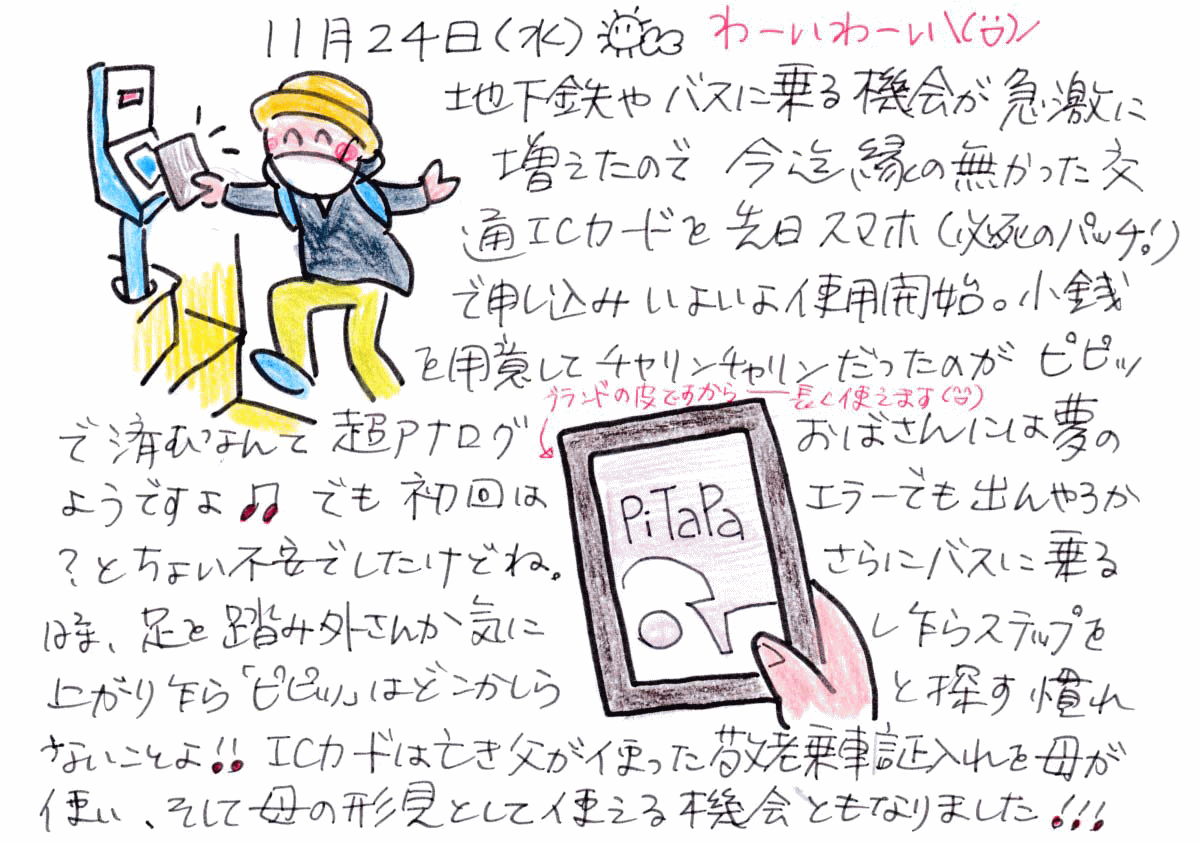 11月24日(水) わーいわーい\(^^)/
地下鉄やバスに乗る機会が急激に
増えたので 今迄縁の無かった交
通ICカードを先日スマホ(必死のパッチ!)
で申し込みいよいよ使用開始。小銭
を用意してチャリンチャリンだったのがピピッ
ブランドの皮ですから一長く使えます(^^)
で済むなんて超アナログ おばさんには夢の
ようですよ♫ でも初回は エラーでも出んやろか
?とちょい不安でしたけどね。 さらにバスに乗る
時、足を踏み外さんか気に し乍らステップを
上がり乍ら「ピピッ」はどこかしら と探す慣れ
ないことよ!! ICカードは亡き父が使った敬老乗車証入れを母が
使い、そして母の形見として使える機会ともなりました!!!
PiTaPa